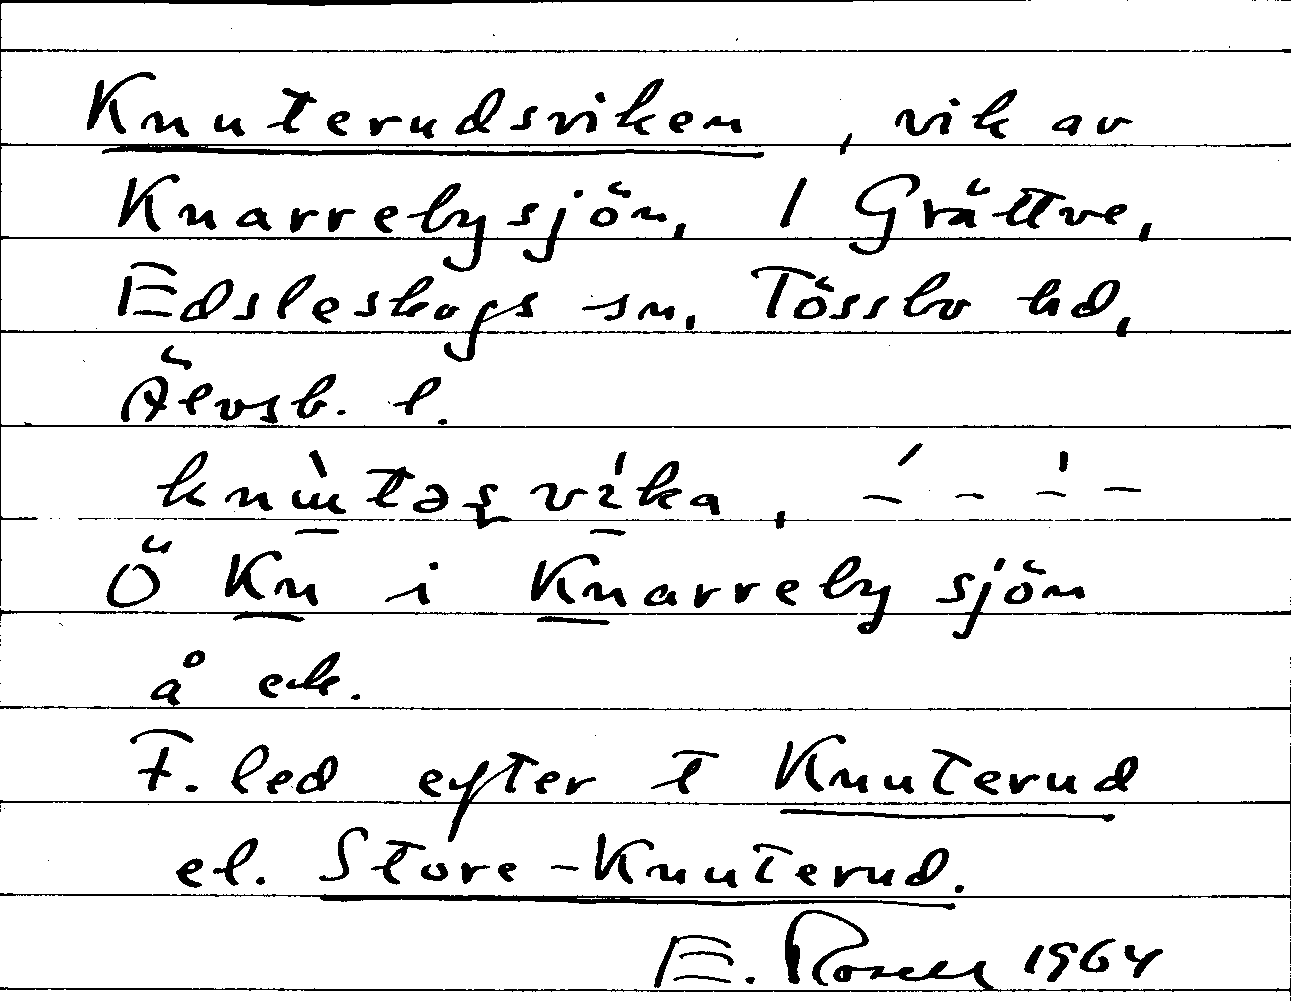 Knuterudsviken, vik av
Knarrebysjön, 1 Grättve,
Edsleskogs sn, Tössbo hd,
Älvsb. l.
Ö Kn i Knarrebysjön
å ek.
F. led efter t Knuterud
el. Store-Knuterud.
E. Rosell 1964